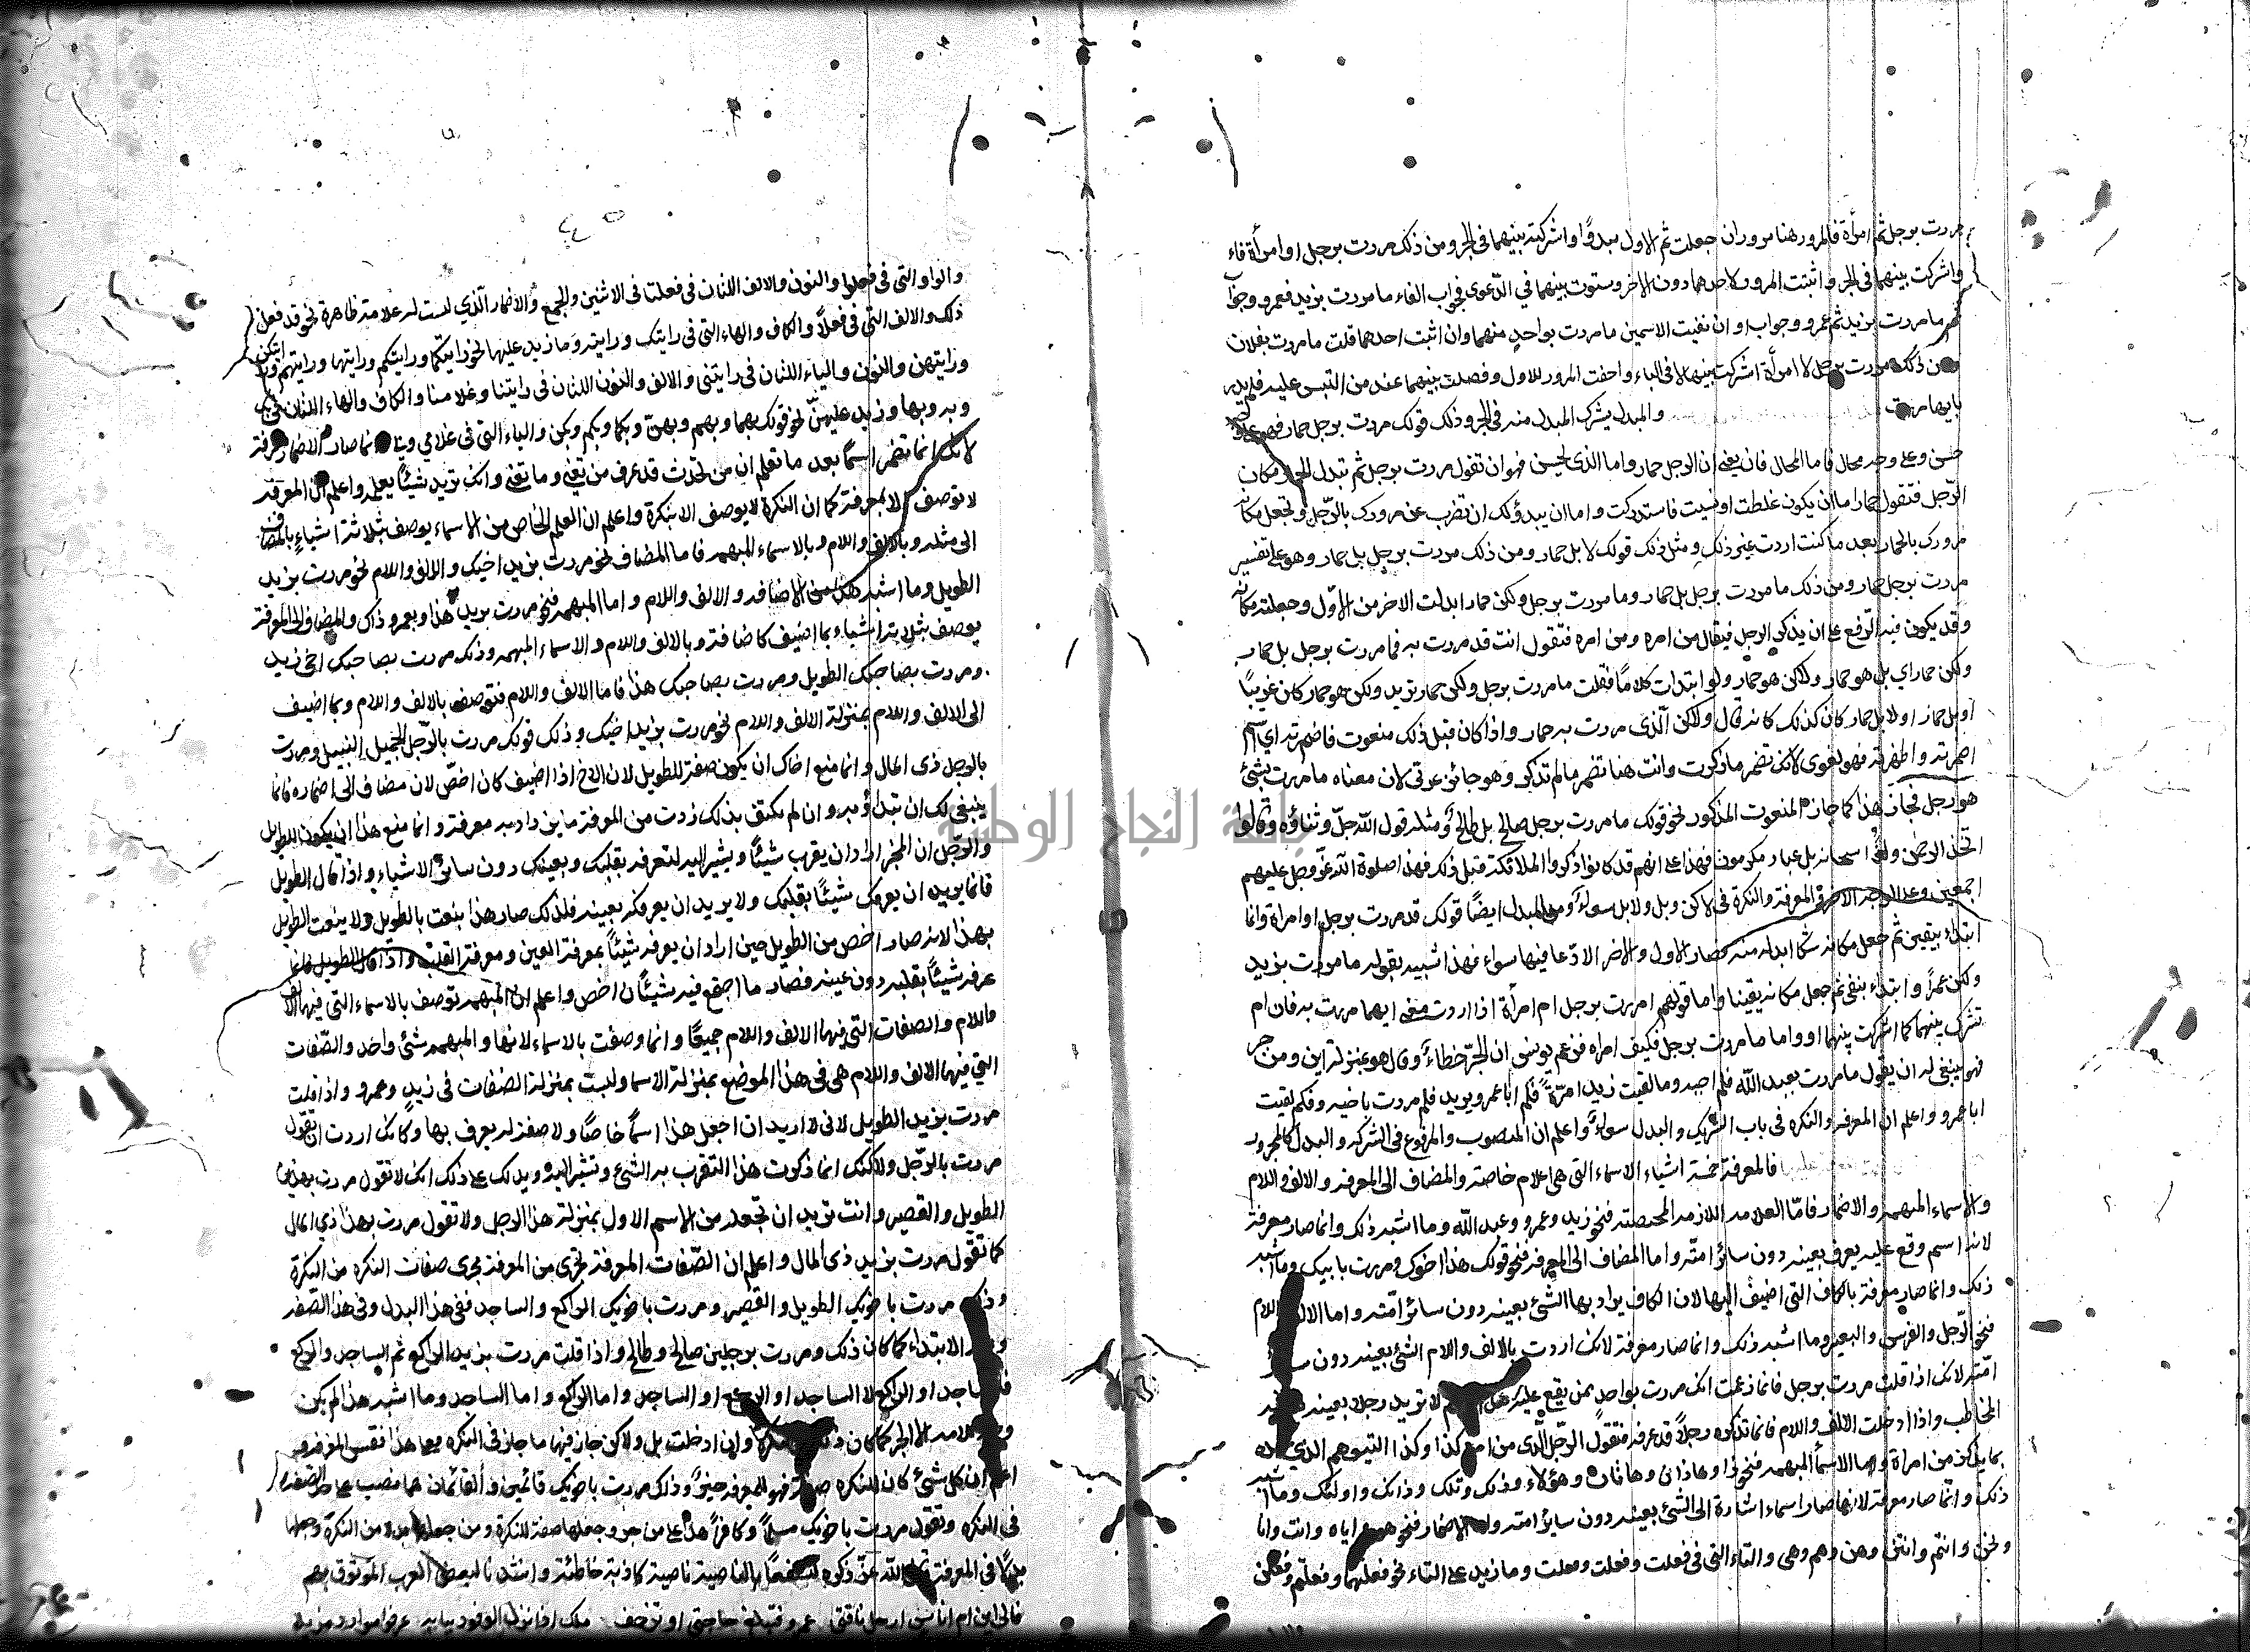 مررت برجل ثم امرأة فالمرور هنا مروران جعلت ثم الاول مبدوًا واشركت بينهما في الجر ومن ذلك مررت برجل او امرأة فاء
واشركت بينهما في الجر واثبتت المرور لاحدهما دون الاخر وسوت بينهما في الدعوى فجواب الفاء ما مررت بزيد فعمرو وجواب
ثم ما مررت بزيد ثم عمرو وجواب او ان نفيت الاسمين ما مررت بواحد منهما وان اثبت احدهما قلت ما مررت بفلان
ومن ذلك مررت برجل لا امرأة اشركت بينهما لا في الباء واحقت المرور للاول وفصلت بينهما عند من التبس عليه فلم يدر
بايهما مررت والمبدل يشرك المبدل منه في الجر وذلك قولك مررت برجل حمار فهو على
حسن وعلى وجه محال فاما المحال فان يعني ان الرجل حمار واما الذي يحسن فهو ان تقول مررت برجل ثم تبدل الحمار مكان
الرجل فتقول حمار اما ان يكون غلطت او نسيت فاستدركت واما ان يبدو لك ان تضرب عن مرورك بالرجل وتجعل مكانه
مرورك بالحمار بعد ما كنت اردت غير ذلك ومثل ذلك قولك لا بل حمار ومن ذلك مررت برجل بل حمار وهو على تفسير
مررت برجل حمار ومن ذلك ما مررت برجل بل حمار وما مررت برجل ولكن حمار ابدلت الاخر من الاول وجعلته مكانه
وقد يكون فيه الرفع على ان يذكر الرجل فيقال من امره ومن امره فتقول انت قد مررت به فما مررت برجل بل حمار
ولكن حمار اي بل هو حمار ولاكن هو حمار ولو ابتدات كلامًا فقلت ما مررت برجل ولكن حمار تريد ولكن هو حمار كان عربيا
او بل حمار او لا بل حمار كان كذلك كانه قال ولاكن الذي مررت به حمار واذا كان قبل ذلك منعوت فاضمرته اي اسم
اضمرته واظهرته فهو اقوى لانك تضمر ما ذكرت وانت هنا تضمر ما لم تذكر وهو جائز عربي لان معناه ما مررت بشئ
هو رجل فجاز هذا كما جاز المنعوت المذكور نحو قولك ما مررت برجل صالح بل طالح ومثله قول الله جل وثناؤه وقالوا
اتخذ الرحمن ولدًا سبحانه بل عباد مكرمون فهذا على انهم قد كانوا ذكروا الملائكة قبل ذلك فهذا صلوة الله عز وجل عليهم
اجمعين وعلى الوجه الاخر والمعرفة والنكرة في لاكن وبل ولا بل سواء ومن المبدل ايضًا قولك قد مررت برجل او امراة وانما
ابتداء بيقين ثم جعل مكانه شكا ابدله منه فصار الاول والاخر الادعا فيهما سواء فهذا شبيه بقوله ما مررت بزيد
ولكن عمرًا وابتداء بنفي ثم جعل مكانه يقينا واما قولهم امررت برجل ام امرأة اذا اردت معنى ايهما مررت به فان ام
تشرك بينهما كما اشركت بينهما او واما ما مررت برجل فكيف امراه فزعم يونس ان الجر خطاء وقال هو بمنزلة اين ومن جر
فهو ينبغي له ان يقول ما مررت بعبد الله فلم اخيه وما لقيت زيدا مرّة فكم ابا عمرو يريد فلم مررت باخيه وفكم لقيت
ابا عمرو واعلم ان المعرفه والنكره في باب الشريك والبدل سواء واعلم ان المنصوب والمرفوع في الشركه والبدل كالمجرور
فالمعرفة خمسة اشياء الاسماء التي هي اعلام خاصة والمضاف الى المعرفه والالف واللام
والاسماء المبهمة والاضمار فامّا العلامه اللازمه المختصة فنحو زيد وعمرو وعبد الله وما اشبه ذلك وانما صار معرفة
لانه اسم وقع عليه يعرف بعينه دون سائر امته واما المضاف الى المعرفه فنحو قولك هذا اخوك ومررت بابيك وما اشبه
ذلك وانما صار معرفة بالكاف التي اضيف اليها لان الكاف يراد بها الشئ بعينه دون سائر امته واما الالف واللام
فنحو الرجل والفرس والبعير وما اشبه ذلك وانما صار معرفة لانك اردت بالالف واللام الشئ بعينه دون
امته لانك اذا قلت مررت برجل فانما زعمت انك مررت بواحد ممن يقع عليه هذا لا تريد رجلا بعينه
المخاطب واذا ادخلت الالف واللام فانما تذكره رجلاً قد عرفه فتقول الرجل الذي من امره كذا وكذا ليتوهم الذي
بما يذكر من امراة واما الاسمأ المبهمه فنحو هذا وهاذان وهاتان وهؤلاء وذلك وتلك وذانك واولئك وما اشبه
ذلك وانما صار معرفة لانها صار اسماء اشارة الى الشئ بعينه دون سائر امته واما الاضمار فنحو هو واياه وانت وانا
ونحن وانتم وانتن وهن وهم وهي والتاء التي في فعلت وفعلت وفعلت وما زيد على التاء نحو فعلتما وفعلتم وفعلتن
والواو التي في فعلوا والنون والالف اللتان في فعلنا في الاثنين والجمع والاضمار الذي ليست له علامة ظاهرة نحو قد فعل
ذلك والالف التي في فعلا والكاف والهاء التي في رايتك ورايته وما زيد عليها نحو رايتكما ورايتكم ورايتها ورايتهم
ورايتهن والنون والياء اللتان في رايتني والالف والنون اللتان في رايتنا وغلامنا والكاف والهاء اللتان في بك
وبه وبها وزيد عليهنّ نحو قولك بهما وبهم وبهنّ وبكما وبكم وبكن والياء التي في غلامي وبي وانما صار الاضمار معرفة
لانك انما تضمر اسمًا بعد ما تعلم ان من تحدث قد عرف من تعني وما تعني وانك تريد شيئًا يعلمه واعلم ان المعرفه
لا توصف الا بمعرفة كما ان النكرة لا يوصف الا بنكرة واعلم ان العلم الخاص من الاسماء يوصف بثلاثة اشياء بالمضاف
الى مثله وبالالف واللام وبالاسماء المبهمه فاما المضاف نحو مررت بزيد اخيك والالف واللام نحو مررت بزيد
الطويل وما اشبه هذا من الاضافه والالف واللام واما المبهمه فنحو مررت بزيد هذا وبعمرو ذاك والمضاف الى المعرفة
يوصف بثلاثة اشياء بما اضيف كاضافته وبالالف واللام والاسماء المبهمه وذلك مررت بصاحبك اخي زيد
ومررت بصاحبك الطويل ومررت بصاحبك هذا فاما الالف واللام فتوصف بالالف واللام وبما اضيف
الى الالف واللام بمنزلة الالف واللام نحو مررت بزيد اخيك وذلك قولك مررت بالرجل الجميل النبيل ومررت
بالرجل ذى المال وانما منع اخاك ان يكون صفة للطويل لان الاخ اذا اضيف كان اخصّ لان مضاف الى اضماره فانما
ينبغي لك ان تبداء به وان لم يكتف بذلك زدت من المعرفة ما يزداد به معرفة وانما منع هذا ان يكون للطويل
والرجل ان المخبر اراد ان يقرب شيئًا ويشير اليه لتعرفه بقلبك وبعينك دون سائر الاشياء واذا قال الطويل
فانما يريد ان يعرفك شيئًا بقلبك ولا يريد ان يعرفكه بعينه فلذلك صار هذا ينعت بالطويل ولا ينعت الطويل
بهذا لانه صار اخص من الطويل حين اراد ان يعرفه شيئًا بمعرفة العين ومعرفة القلب واذا قال الطويل فانما
عرفه شيئًا بقلبه دون عينه فصار ما اجتمع فيه شيئان اخص واعلم ان المبهمه توصف بالاسماء التي فيها الالف
واللام والصفات التي فيها الالف واللام جميعًا وانما وصفت بالاسماء لانها والمبهمه شئ واحد والصّفات
التي فيها الالف واللام هي في هذا الموضع بمنزلة الاسما وليست بمنزلة الصفات في زيد وعمرو واذا قلت
مررت بزيد الطويل لاني لا اريد ان اجعل هذا اسمًا خاصًا ولا صفة له يعرف بها وكانك اردت ان تقول
مررت بالرجل ولاكنك انما ذكرت هذا لتقرب به الشئ وتشير اليه ويدلك على ذلك انك لا تقول مررت بهذين
الطويل والقصير وانت تريد ان تجعله من الاسم الاول بمنزلة هذا الرجل ولا تقول مررت بهذا ذي المال
كما تقول مررت بزيد ذى المال واعلم ان الصّفات المعرفة تجرى من المعرفة مجرى صفات النكره من النكرة
وذلك مررت باخويك الطويل والقصير ومررت باخويك الراكع والساجد ففي هذا البدل وفي هذا الصّفه
وفيه الابتداء كما كان ذلك ومررت برجلين صالح وطالح واذا قلت مررت بزيد الراكع ثم الساجد والراكع
فالساجد او الراكع لا الساجد او الراكع او الساجد واما الراكع واما الساجد وما اشبه هذا لم يكن
وجه كلامه الا الجر كما كان ذلك في النكرة وان ادخلت بل ولاكن جاز فيهما ما جاز في النكره
اعلم ان كل شئ كان للنكره صفة فهو للمعرفه خبر وذلك مررت باخويك قائمين فالقائمان هنا نصب على حد الصفه
في النكره وتقول مررت باخويك مسلمًا وكافرًا هذا على من جر وجعلها صفة للنكرة ومن جعلها بدلا من النكرة جعلها
بدلًا في المعرفة كما قال الله عزّ ذكره لنسفعًا بالناصية ناصية كاذبة خاطئة وانشدنا لبعض العرب الموثوق بهم
فالى ابن ام اناس ارحل ناقتي عمرو فتبلغ حاجتي او تزحف ملك اذا نزل الوفود ببابه عرفوا موارد مزبد
جامعة النجاح الوطنية